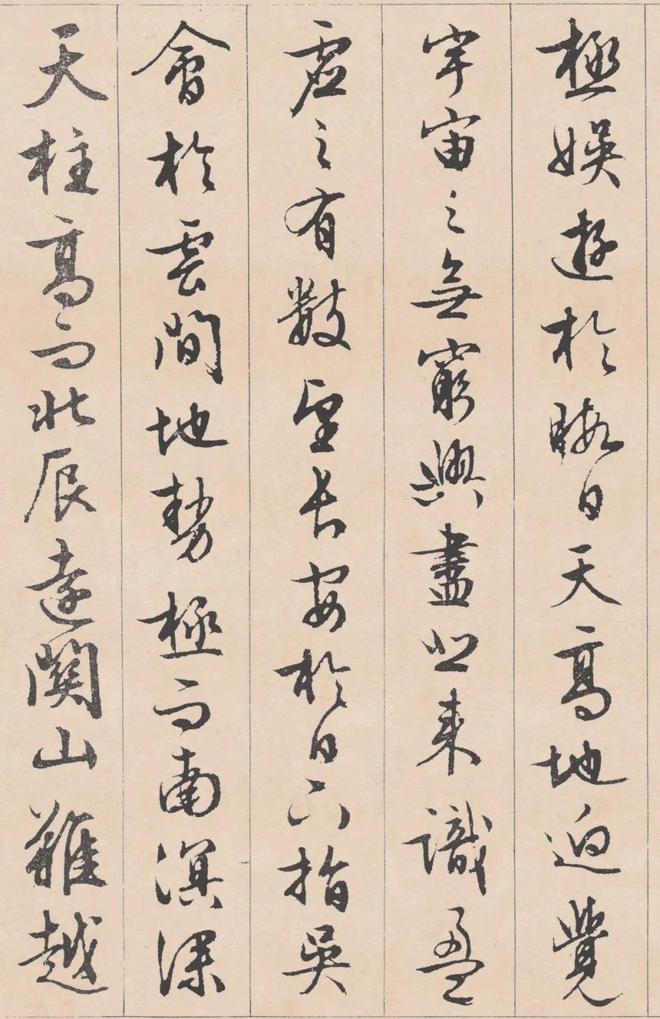 極娛遊於暇日天高地迫覺
宇宙之無窮興盡悲來識盈
虛之有數望長安於日下指吳
會於雲間地勢極而南溟深
天柱高而北辰遠關山難越